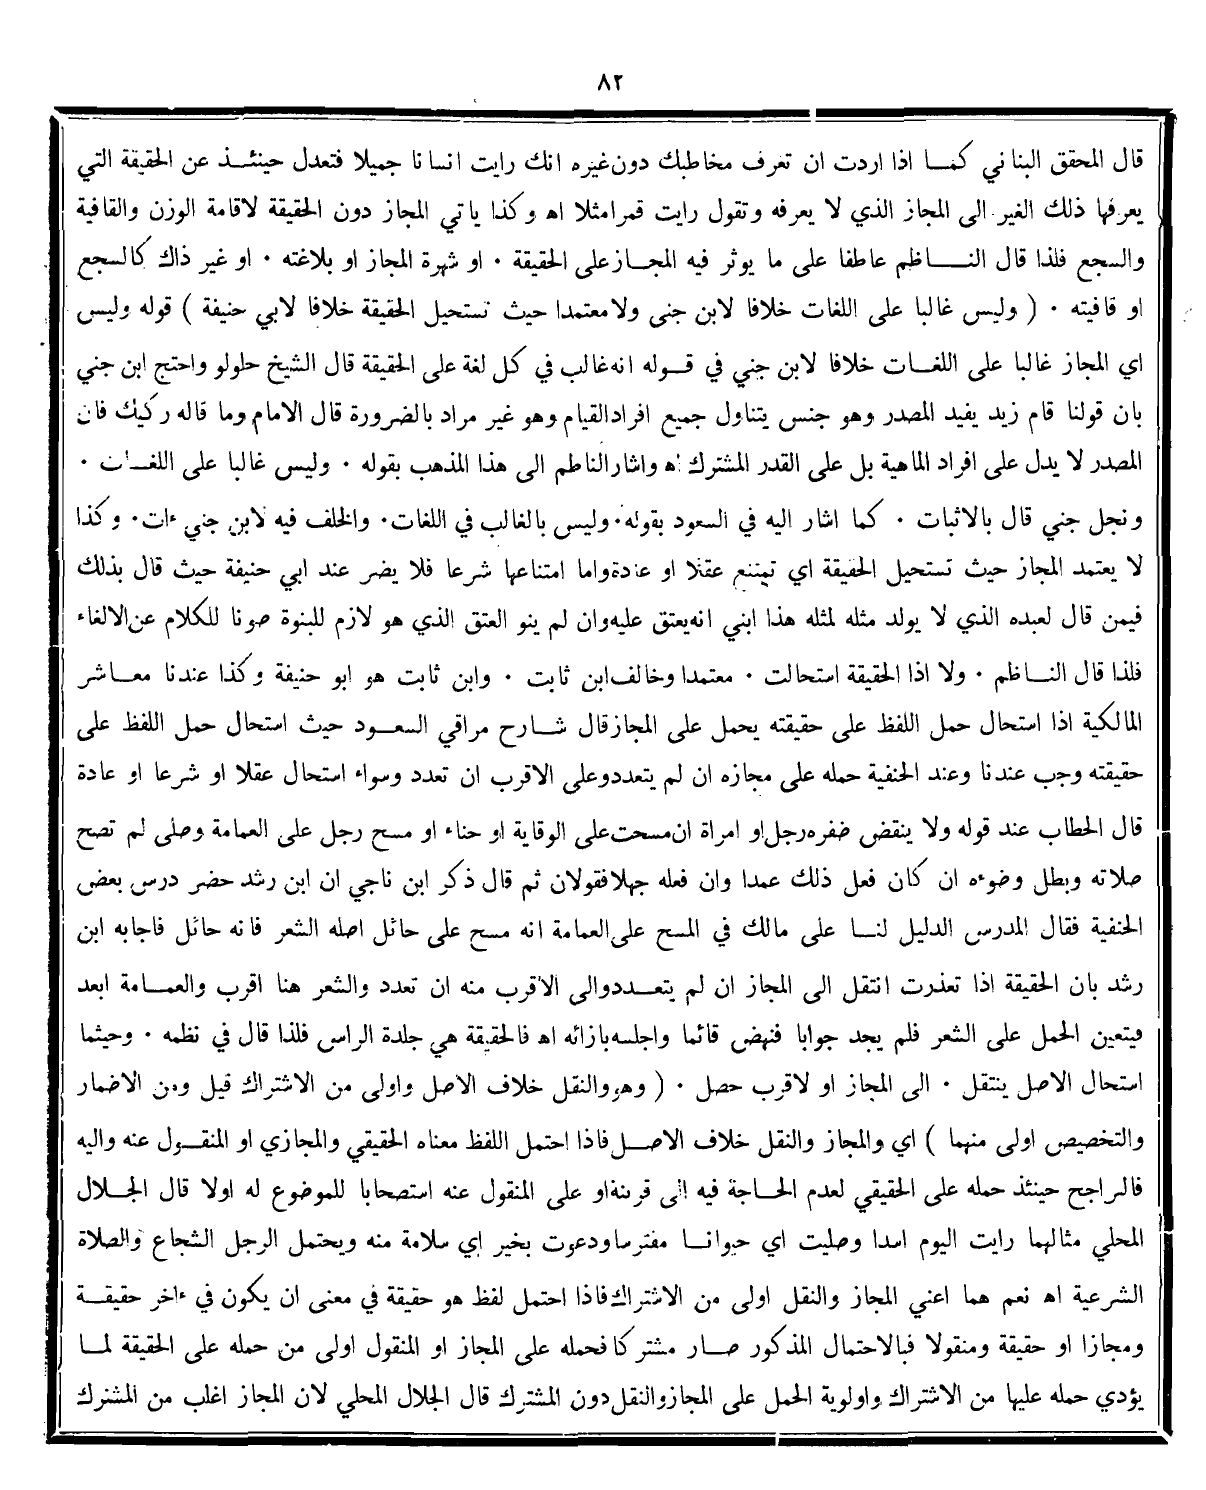 ٨٢
قال المحقق البناني كما اذا اردت ان تعرف مخاطبك دون غيره انك رايت انسانا جميلا فتعدل حينئذ عن الحقيقة التي
يعرفها ذلك الغير الى المجاز الذي لا يعرفه وتقول رايت قمرا مثلا اه وكذا ياتي المجاز دون الحقيقة لاقامة الوزن والقافية
والسجع فلذا قال الناظم عاطفا على ما يوثر فيه المجاز على الحقيقة ٠ او شهرة المجاز او بلاغته ٠ او غير ذاك كالسجع
او قافيته ٠ ( وليس غالبا على اللغات خلافا لابن جنى ولا معتمدا حيث تستحيل الحقيقة خلافا لابي حنيفة ) قوله وليس
اي المجاز غالبا على اللغات خلافا لابن جني في قوله انه غالب في كل لغة على الحقيقة قال الشيخ حلولو واحتج ابن جني
بان قولنا قام زيد يفيد المصدر وهو جنس يتناول جميع افراد القيام وهو غير مراد بالضرورة قال الامام وما قاله ركيك فان
المصدر لا يدل على افراد الماهية بل على القدر المشترك اه واشار الناظم الى هذا المذهب بقوله ٠ وليس غالبا على اللغات ٠
ونجل جني قال بالاثبات ٠ كما اشار اليه في السعود بقوله ٠ وليس بالغالب في اللغات ٠ والخلف فيه لابن جني ءات ٠ وكذا
لا يعتمد المجاز حيث تستحيل الحقيقة اي تمتنع عقلا او عادة واما امتناعها شرعا فلا يضر عند ابي حنيفة حيث قال بذلك
فيمن قال لعبده الذي لا يولد مثله لمثله هذا ابني انه يعتق عليه وان لم ينو العتق الذي هو لازم للبنوة صونا للكلام عن الالغاء
فلذا قال الناظم ٠ ولا اذا الحقيقة استحالت ٠ معتمدا وخالف ابن ثابت ٠ وابن ثابت هو ابو حنيفة وكذا عندنا معاشر
المالكية اذا استحال حمل اللفظ على حقيقته يحمل على المجاز قال شارح مراقي السعود حيث استحال حمل اللفظ على
حقيقته وجب عندنا وعند الحنفية حمله على مجازه ان لم يتعدد وعلى الاقرب ان تعدد وسواء استحال عقلا او شرعا او عادة
قال الحطاب عند قوله ولا ينقض ضفره رجل او امراة ان مسحت على الوقاية او حناء او مسح رجل على العمامة وصلى لم تصح
صلاته وبطل وضوءه ان كان فعل ذلك عمدا وان فعله جهلا فقولان ثم قال ذكر ابن ناجي ان ابن رشد حضر درس بعض
الحنفية فقال المدرس الدليل لنا على مالك في المسح على العمامة انه مسح على حائل اصله الشعر فانه حائل فاجابه ابن
رشد بان الحقيقة اذا تعذرت انتقل الى المجاز ان لم يتعدد والى الاقرب منه ان تعدد والشعر هنا اقرب والعمامة ابعد
فيتعين الحمل على الشعر فلم يجد جوابا فنهض قائما واجلسه بازائه اه فالحقيقة هي جلدة الراس فلذا قال في نظمه ٠ وحيثما
استحال الاصل ينتقل ٠ الى المجاز او لاقرب حصل ٠ ( وهو والنقل خلاف الاصل واولى من الاشتراك قيل ومن الاضمار
والتخصيص اولى منهما ) اي والمجاز والنقل خلاف الاصل فاذا احتمل اللفظ معناه الحقيقي والمجازي او المنقول عنه واليه
فالراجح حينئذ حمله على الحقيقي لعدم الحاجة فيه الى قرينة او على المنقول عنه استصحابا للموضوع له اولا قال الجلال
المحلي مثالهما رايت اليوم اسدا وصليت اي حيوانا مفترسا ودعوت بخير اي سلامة منه ويحتمل الرجل الشجاع والصلاة
الشرعية اه نعم هما اعني المجاز والنقل اولى من الاشتراك فاذا احتمل لفظ هو حقيقة في معنى ان يكون في ءاخر حقيقة
ومجازا او حقيقة ومنقولا فبالاحتمال المذكور صار مشتركا فحمله على المجاز او المنقول اولى من حمله على الحقيقة لما
يؤدي حمله عليها من الاشتراك واولوية الحمل على المجاز والنقل دون المشترك قال الجلال المحلي لان المجاز اغلب من المشترك